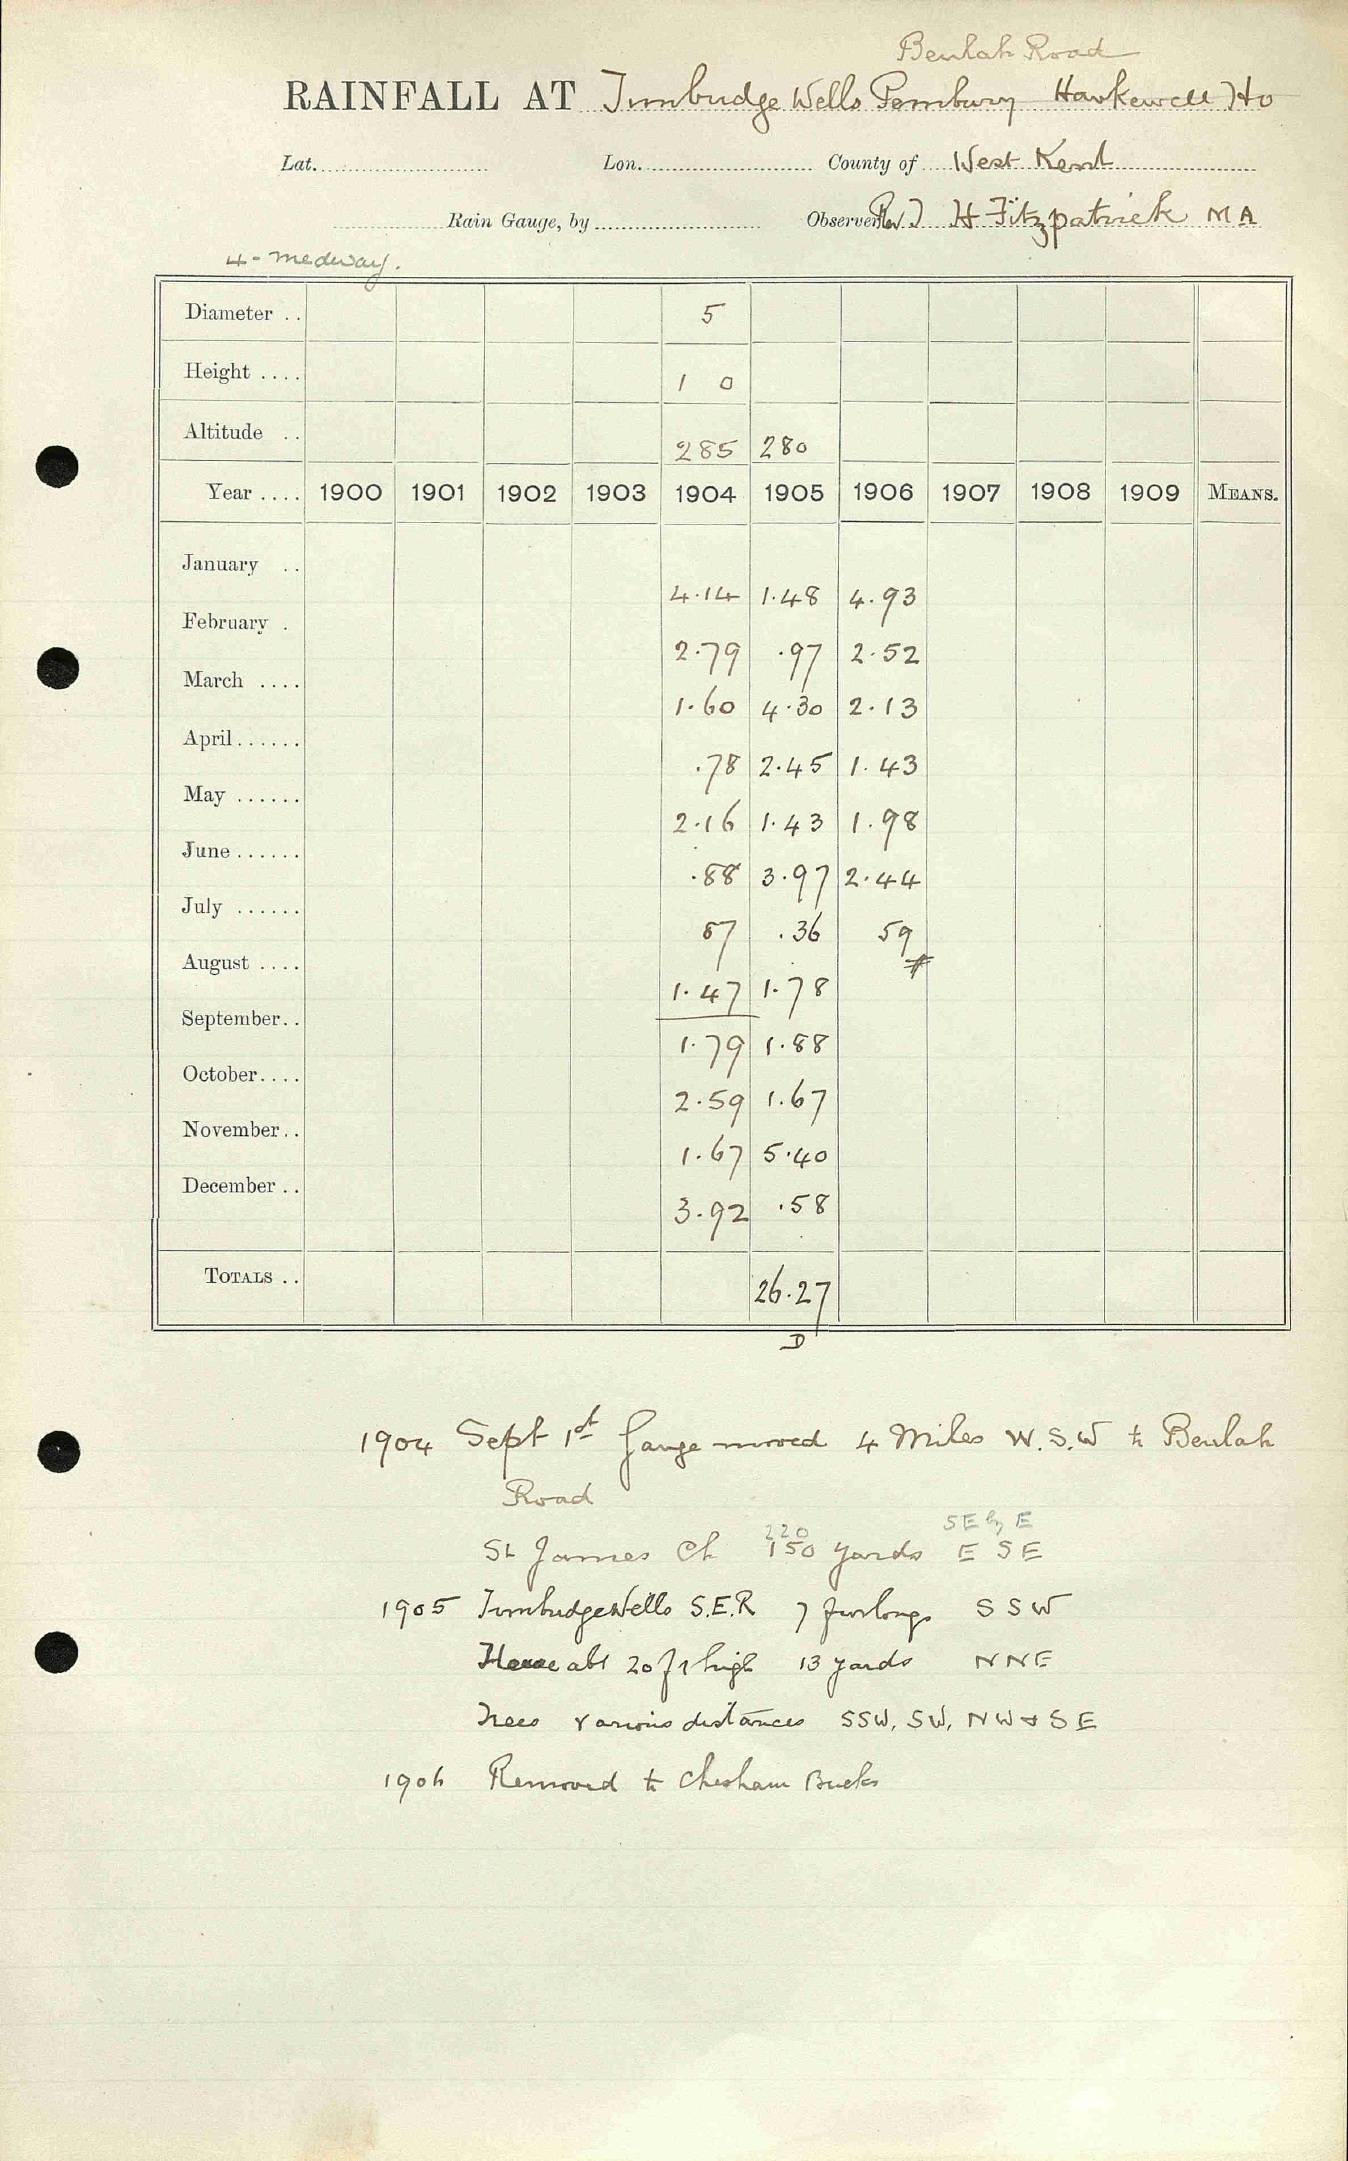 Beulah Road
RAINFALL AT Tunbridge Wells Pembury Hawkewell Ho
Lat. Lon. County of West Kent
Rain Gauge, by Observer Rev J H Fitzpatrick M A
4 - Medway.
Diameter .. 5
Height .... 1 0
Altitude .. 285 280
Year .... 1900 1901 1902 1903 1904 1905 1906 1907 1908 1909 MEANS.
January .. 4.14 1.48 4.93
February . 2.79 .97 2.52
March .... 1.60 4.30 2.13
April...... .78 2.45 1.43
May ...... 2.16 1.43 1.98
June...... .88 3.97 2.44
July ...... 87 .36 59
August .... 1.47 1.78
September.. 1.79 1.88
October.... 2.59 1.67
November.. 1.67 5.40
December.. 3.92 .58
TOTALS .. 26.27
D
1904 Sept 1st Gauge moved 4 Miles W.S.W to Beulah
Road
220 SE by E
St James Ch 150 yards E S E
1905 Tunbridge Wells S.E.R 7 furlongs S S W
House abt 20 ft high 13 yards N N E
Trees various distances SSW, SW, NW + SE
1906 Removed to Chesham Bucks